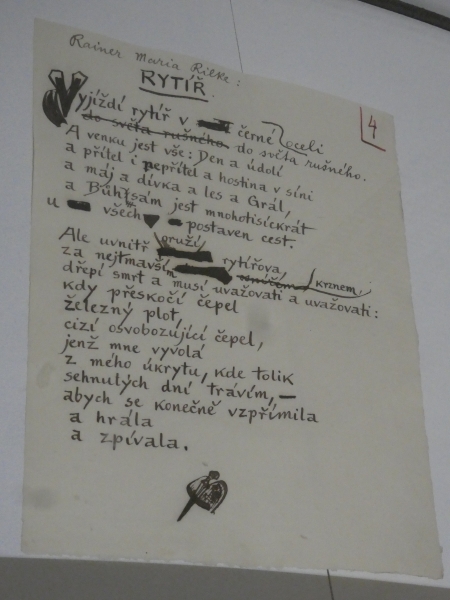 Rainer Maria Rilke:
RYTÍŘ.
4
Vyjíždí rytíř v černé oceli
do světa rušného do světa rušného.
A venku jest vše: Den a údolí
a přítel i nepřítel a hostina v síni
a máj a dívka a les a Grál,
a Bůh sám jest mnohotisíckrát
u všech postaven cest.
Ale uvnitř pruží rytířova,
za nejtmavším kyznem
dřepí smrt a musí uvažovati a uvažovati:
kdy přeskočí čepel
železný plot,
cizí osvobozující čepel,
jenž mne vyvolá
z mého úkrytu, kde tolik
sehnulých dní trávím, —
abych se konečně vzpřímila
a hrála
a zpívala.